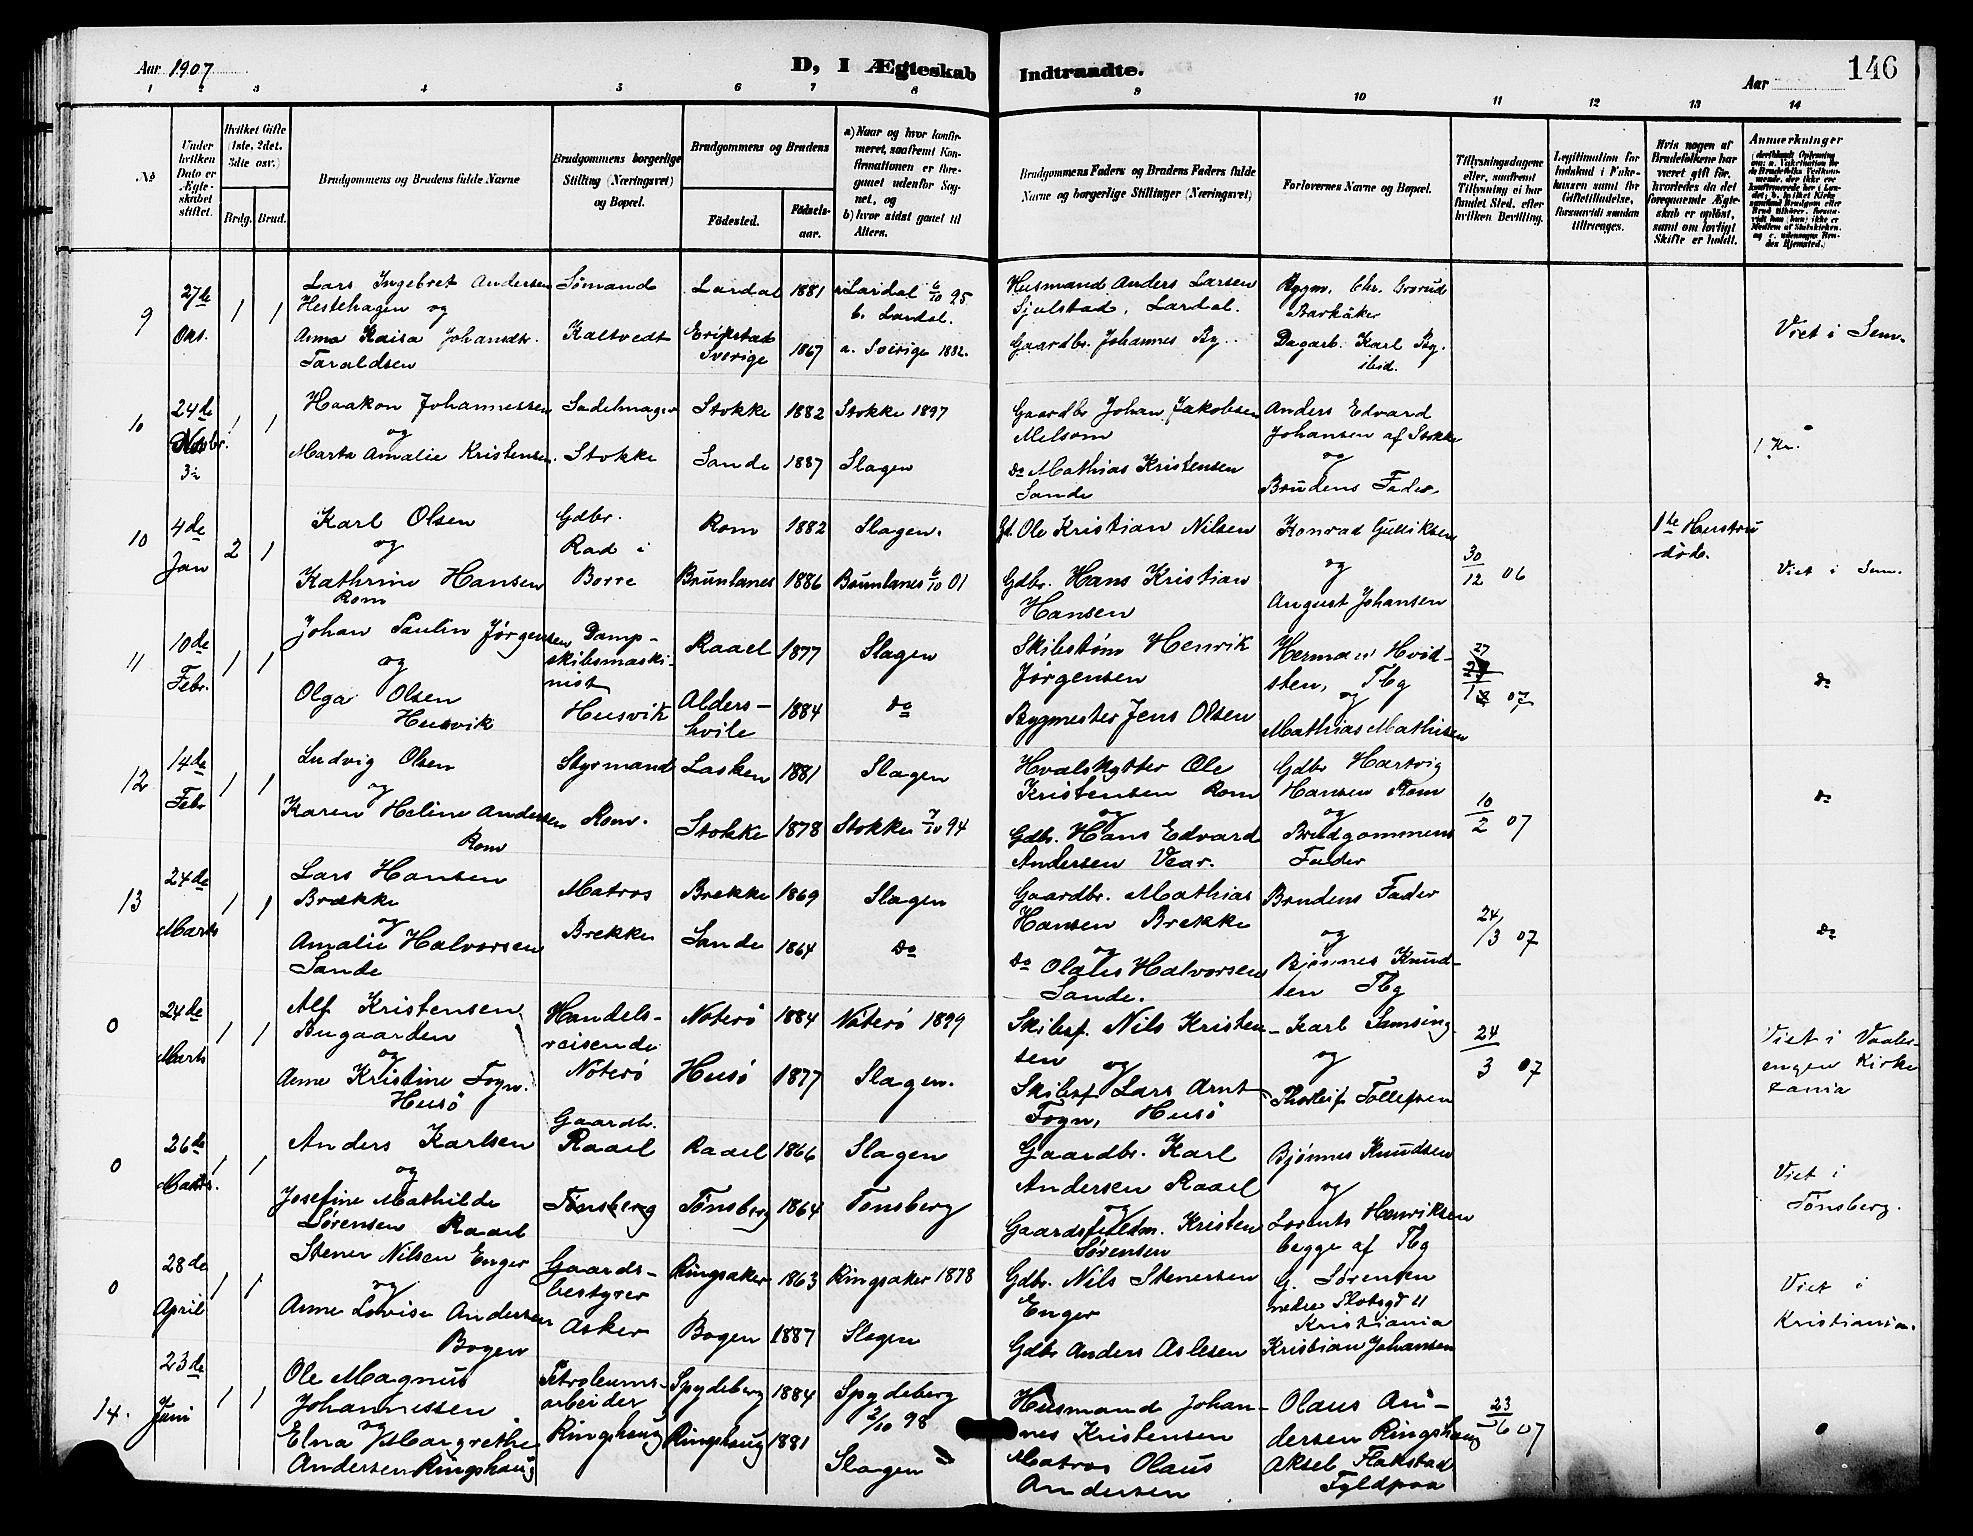 Aar 1907
D, I Ægteskab Indtraadte.
Aar
146
1 2 3 4 5 6 7 8 9 10 11 12 13 14
No
Under hvilken Dato er Ægteskabet stiftet.
Hvilket Gifte (1ste, 2det, 3die osv.)
Brdg. Brud.
Brudgommens og Brudens fulde Navne
Brudgommens borgerlige Stilling (Næringsvei) og Bopæl.
Brudgommens og Brudens
Fødested.
Fødselsaar.
a) Naar og hvor konfirmeret, saafremt Konfirmationen er foregaaet udenfor Sognet, og
b) hvor sidst gaaet til Alters.
Brudgommens Faders og Brudens Faders fulde Navne og borgerlige Stillinger (Næringsvei)
Forlovernes Navne og Bopæl.
Tillysningsdagene eller, saafremt Tillysning ei har fundet Sted, efter hvilken Bevilling.
Legitimation for Indskud i Enkekassen samt for Giftetilladelse, forsaavidt saadan tiltrænges.
Hvis nogen af Brudefolkene har været gift før, hvorledes da det foregaaende Ægteskab er opløst, samt om lovligt Skifte er holdt.
Anmærkninger
9 27de Okt. 1 1
Lars Ingebret Andersen Sømand Lardal 1881 a. Lardal 6/10 95
Hestehagen og b. Lardal.
Anna Kaisa Johansdtr. Kaltvedt Erikstad Sverige 1867 a. Sverige 1882.
Taraldsen
Husmand Anders Larsen Bygm. Chr. Grorud
Sjulstad, Lardal. Barkåker
Gaardbr. Johannes By Dagarb. Karl By, ibid.
Viet i Sem.
10 24de Novbr. 1 1
Haakon Johannessen Sadelmager Stokke 1882 Stokke 1897
og
Marta Amalie Kristensen. Stokke Sande 1887 Slagen
Gaardbr Johan Jakobsen Anders Edvard
Melsom Johansen af Stokke
og
do Mathias Kristensen
Sande Brudens Fader.
1 Kr.
10 4de Jan 2 1
Karl Olsen Gdbr. Rom 1882 Slagen.
og Rad i
Kathrine Hansen Borre Brunlanes 1886 Brunlanes 6/10 01
Rom
Gb. Ole Kristian Nilsen Konrad Gulliksen
og
Gdbr. Hans Kristian
Hansen August Johansen
30/12 06
1te Hustru døde.
Viet i Sem.
11 10de Febr. 1 1
Johan Paulin Jørgensen Dampskibsmaskinist Raael 1877 Slagen
og
Olga Olsen Husvik Aldershvile 1884 do
Husvik
Skibstøm Henrik Herman Hvidsten, Tbg
Jørgensen og
Bygmester Jens Olsen Mathias Mathisen
27/1 07
do
12 14de Febr 1 1
Ludvig Olsen Styrmand Lasken 1881 Slagen
og
Karen Heline Andersen Rom. Stokke 1878 Stokke 7/10 94
Rom
Hvalskytter Ole Gdbr Hartvig
Kristensen Rom Hansen Rom
og og
Gdbr. Hans Edvard Brudgommens
Andersen Vear. Fader
10/2 07
do
13 24de Marts 1 1
Lars Hansen
Brække Matros Brekke 1869 Slagen
og
Amalie Halvorsen Brekke Sande 1864 do
Sande
Gaardbr. Mathias Brudens Fader
Hansen Brekke og
og
do Olaus Halvorsen Bjønnes Knudsen Tbg
Sande.
24/3 07
do
0 24de Marts 1 1
Alf Kristensen Handelsreisende Nøterø 1884 Nøterø 1899
Bugaarden
og
Anne Kristine Fogn. Nøterø Husø 1877 Slagen.
Husø
Skibsf. Nils Kristensen Karl Samsing
og og
Skibsf Lars Arnt Thorleif Tollefsen
Fogn, Husø
24/3 07
Viet i Vaalerengen Kirke
0 26de Marts. 1 1
Anders Karlsen Gaardb. Raael Raael 1866 Slagen
og
Josefine Mathilde Tønsberg Tønsberg 1864 Tønsberg
Sørensen Raael
Gaardbr. Karl Bjønnes Knudsen
Andersen Raael og
og
Kristen Lorents Henriksen
Sørensen begge af Tbg
Viet i Tønsberg.
0 28de April 1 1
Stener Nilsen Enger Gaardsbestyrer Ringsaker 1863 Ringsaker 1878
og
Anne Lovise Andersen Asker Bogen 1887 Slagen
Bogen
Gdbr. Nils Stenersen G. Sørensen
Enger nedre Slotsgd 11
Kristiania
Gdbr Anders Aslesen Kristian Johansen
Viet i Kristiania.
14. 23de Juni 1 1
Ole Magnus Petroleumsarbeider Spydeberg 1884 Spydeberg
Johannessen 2/10 98
og
Elna Margrethe Ringshaug Ringshaug 1881 Slagen
Andersen Ringshaug
Husmand Johannes Kristensen Olaus Andersen Ringshaug
Matros Olaus Aksel Flakstad
Andersen Fyldpaa
23/6 07